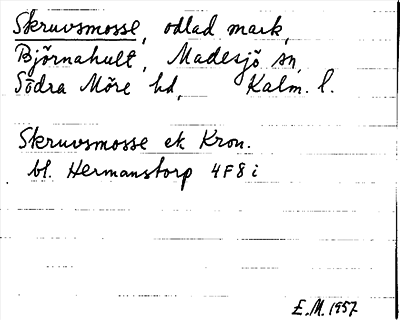 Skruvsmosse, odlad mark,
Björnahult, Madesjö sn,
Södra Möre hd, Kalm. l.
Skruvsmosse ek Kron.
bl. Hermanstorp 4F8i
E.M. 1957